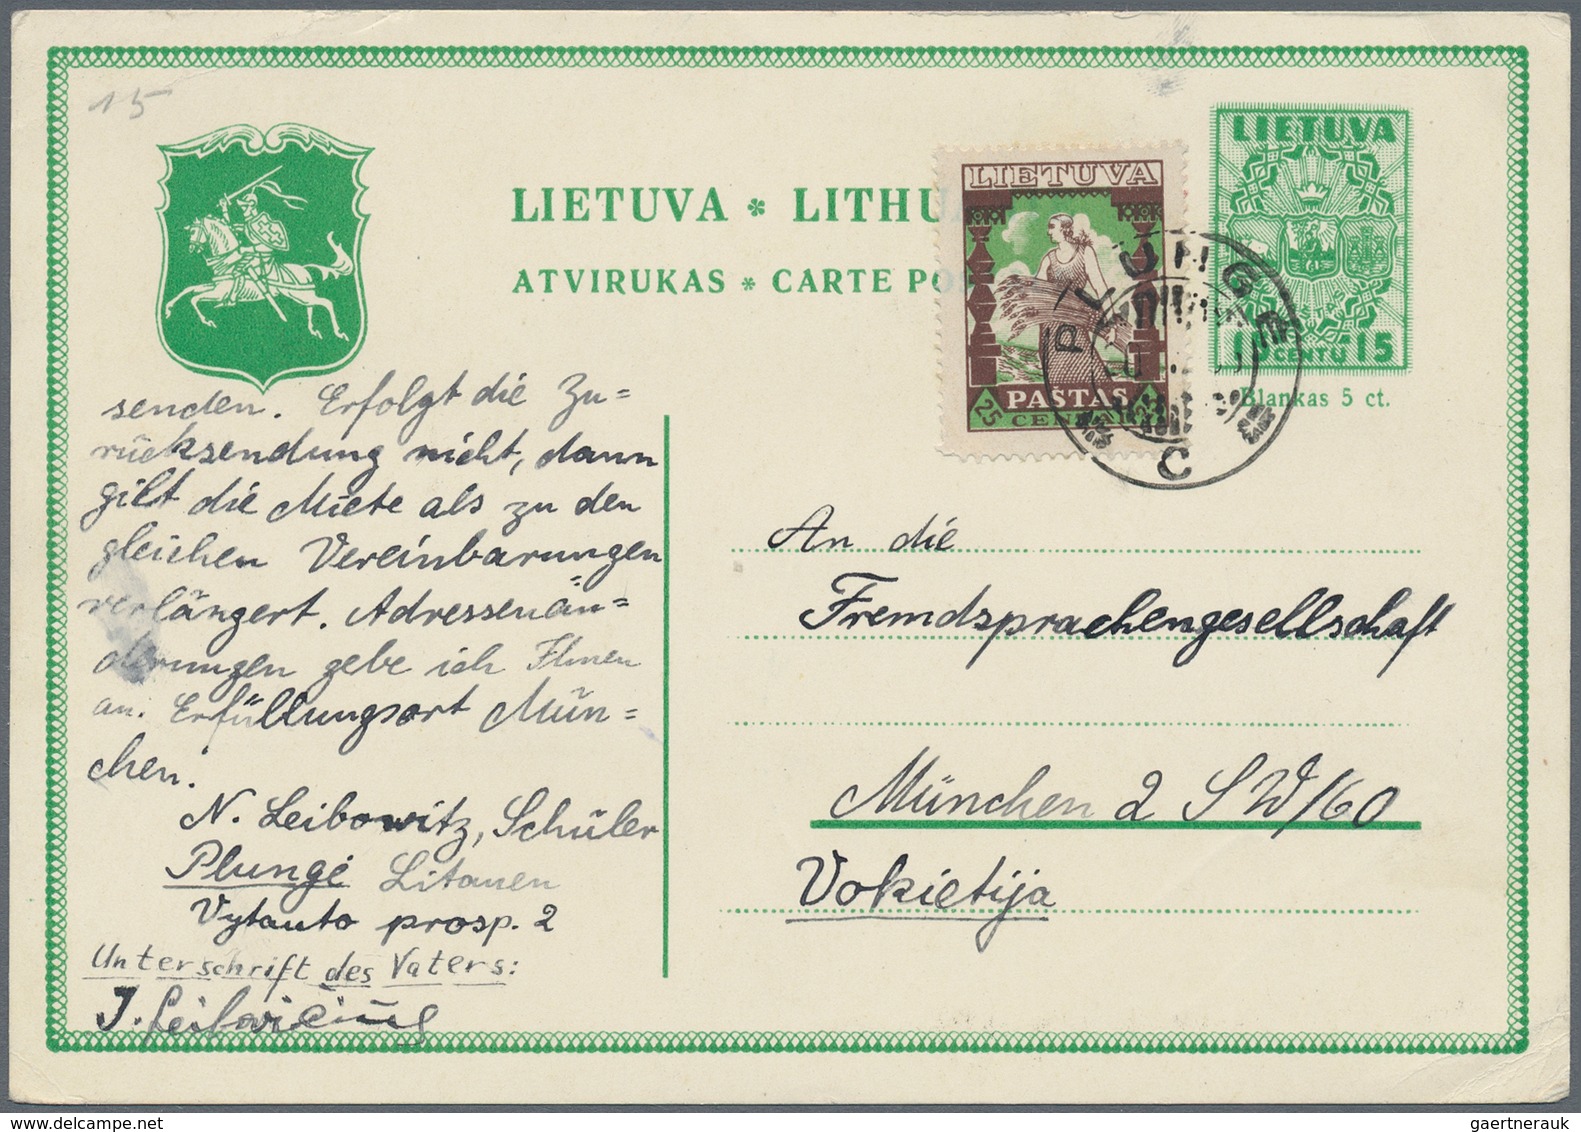 15
LIETUVA * LITHU
ATVIRUKAS * CARTE PO
LIETUVA
PAŠTAS
25 CEN
LIETUVA
15 CENTŲ 15
Blankas 5 ct.
PLUNGĖ
C
senden. Erfolgt die Zu=
rücksendung nicht, dann
gilt die Miete als zu den
gleichen Vereinbarungen
verlängert. Adressenän=
derungen gebe ich Ihnen
an. Erfüllungsort Mün=
chen.
N. Leibowitz, Schüler
Plungė Litauen
Vytauto prosp. 2
Unterschrift des Vaters:
J. Leibovičius
An die
Fremdsprachengesellschaft
München 2 SW/60
Vokietija
gaertnerauk